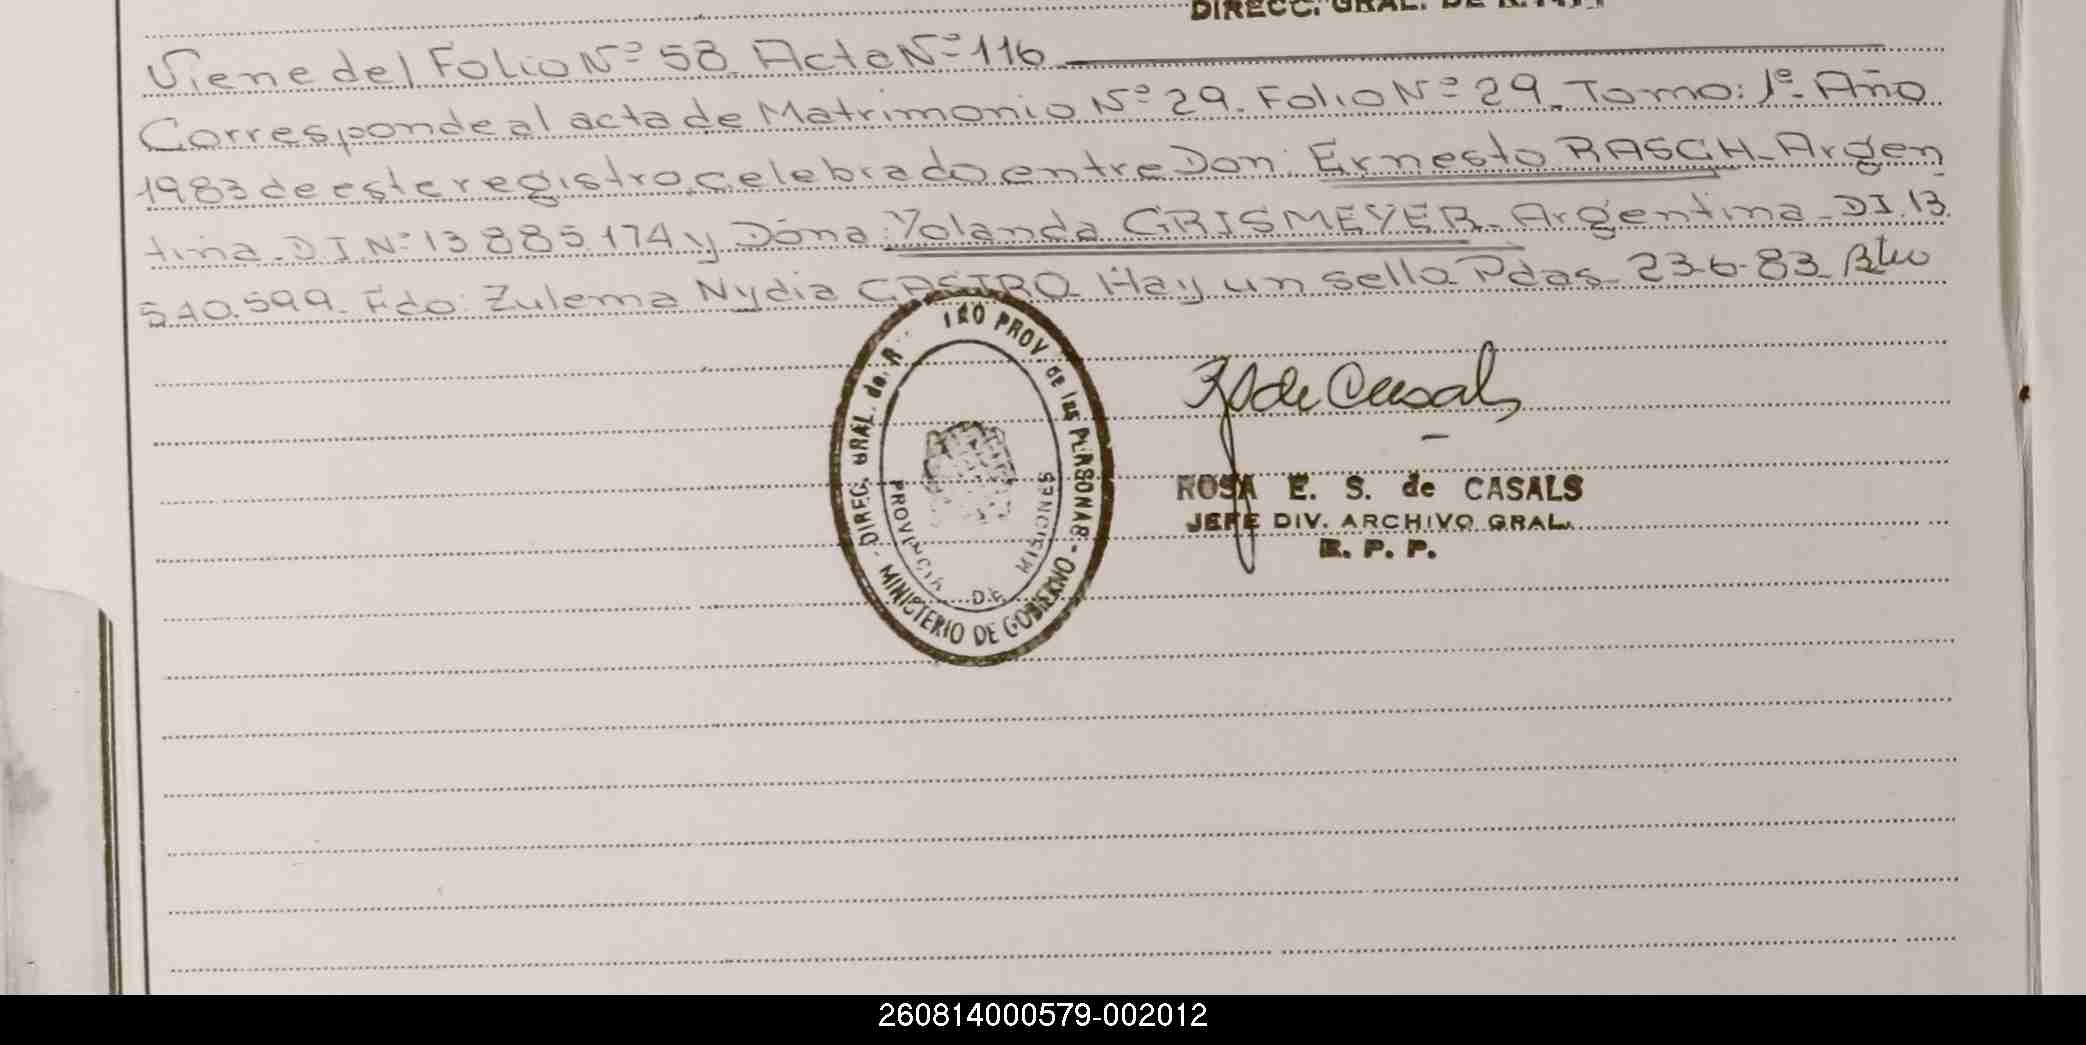 DIRECC. GRAL. DE
Viene del Folio Nº 58. Acta Nº 116
Corresponde al acta de Matrimonio Nº 29. Folio Nº 29. Tomo: 1º. Año
1983 de este registro, celebrado entre Don: Ernesto RASCH. Argen
tina. D I Nº 13 885.174 y Doña: Yolanda GRISMEYER. Argentina. DI. 13
510.599. Fdo: Zulema Nydia CASTRO. Hay un sello. Pdas. 23.6.83.
DIREC. GRAL. de PROV de las PERSONAS - MINISTERIO DE GOBIERNO -
PROVINCIA DE MISIONES
de Casals
ROSA E. S. de CASALS
JEFE DIV. ARCHIVO GRAL.
R. P. P.
260814000579-002012